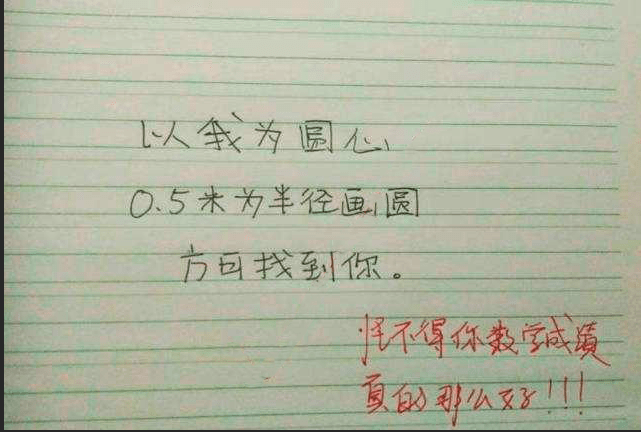 以我为圆心
0.5米为半径画圆
方可找到你。
怪不得你数学成绩
真的那么好!!!